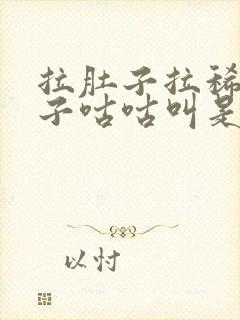 拉肚子拉稀
子咕咕叫是
以忖